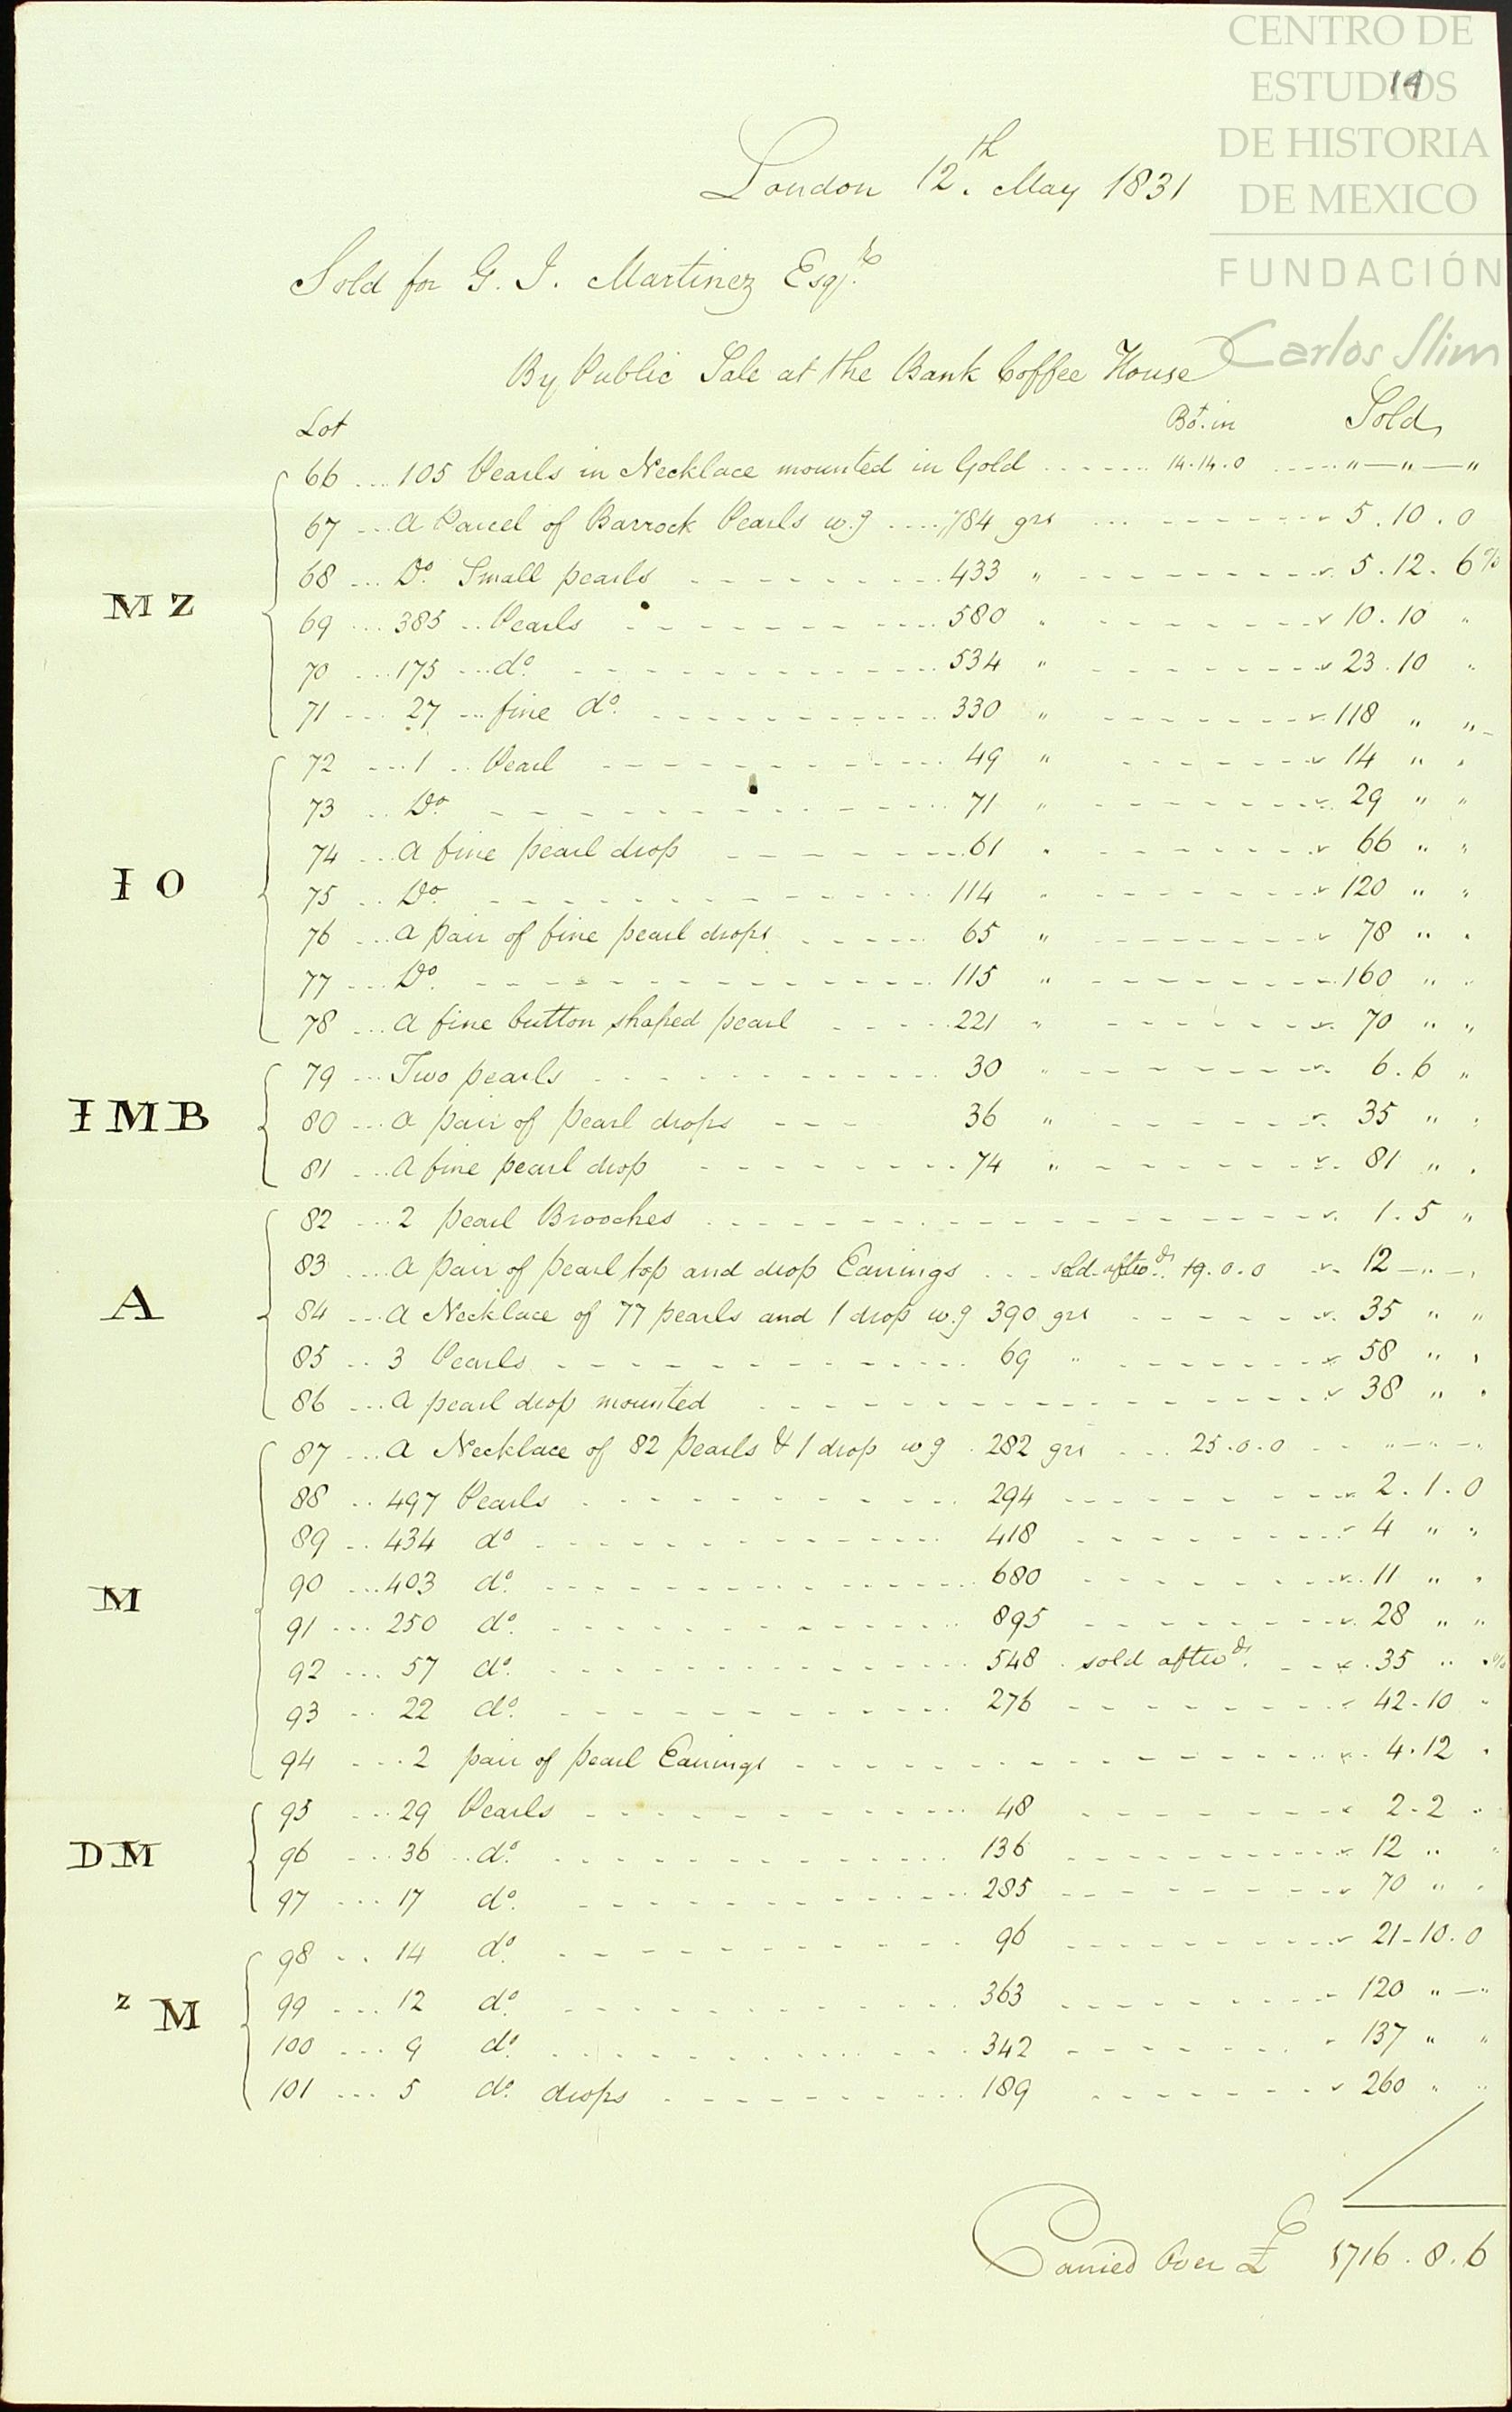 CENTRO DE
ESTUDIOS
DE HISTORIA
DE MEXICO
FUNDACIÓN
Carlos Slim
14
London 12th. May 1831
Sold for G. I. Martinez Esqre.
By Public Sale at the Bank Coffee House
Lot Bot. in Sold
66 ... 105 Pearls in Necklace mounted in Gold ....... 14.14.0 ..... " — " — "
67 ... A Parcel of Barrock Pearls w.g .... 784 grs ... 5 . 10 . 0
68 ... Do. Small pearls 433 " 5 . 12 . 6
MZ
69 ... 385 .. Pearls 580 " 10 . 10 "
70 ... 175 ... do. 534 " 23 . 10 "
71 ... 27 ... fine do. 330 " 118 " "
72 ... 1 .. Pearl 49 " 14 " "
73 .. Do. 71 " 29 " "
74 ... A fine pearl drop 61 " 66 " "
IO
75 .. Do. 114 " 120 " "
76 ... A pair of fine pearl drops 65 " 78 " "
77 ... Do. 115 " 160 " "
78 ... A fine button shaped pearl 221 " 70 " "
79 ... Two pearls 30 " 6 . 6 "
IMB
80 ... A pair of pearl drops 36 " 35 " "
81 ... A fine pearl drop 74 " 81 " "
82 ... 2 pearl Brooches 1 . 5 "
83 .... A pair of pearl top and drop Earrings ... sold aftwds. 19.0.0 12 — " — "
A
84 ... A Necklace of 77 pearls and 1 drop w.g 390 grs 35 " "
85 .. 3 Pearls 69 " 58 " "
86 ... A pearl drop mounted 38 " "
87 ... A Necklace of 82 Pearls & 1 drop w.g . 282 grs ... 25.0.0 .. " — " — "
88 .. 497 Pearls 294 2 . 1 . 0
89 .. 434 do 418 4 " "
90 ... 403 do. 680 11 " "
M
91 ... 250 do. 895 28 " "
92 ... 57 do. 548 . sold aftwds. 35 " "
93 .. 22 do. 276 42 - 10 "
94 ... 2 pair of pearl Earrings 4 . 12 "
95 ... 29 Pearls 48 2 - 2 "
DM
96 ... 36 .. do. 136 12 " "
97 ... 17 do. 285 70 " "
98 .. 14 do. 96 21 - 10 . 0
z M
99 ... 12 do. 363 120 " — "
100 ... 9 do. 342 137 " "
101 ... 5 do. drops 189 260 " "
Carried Over £ 1716 . 8 . 6